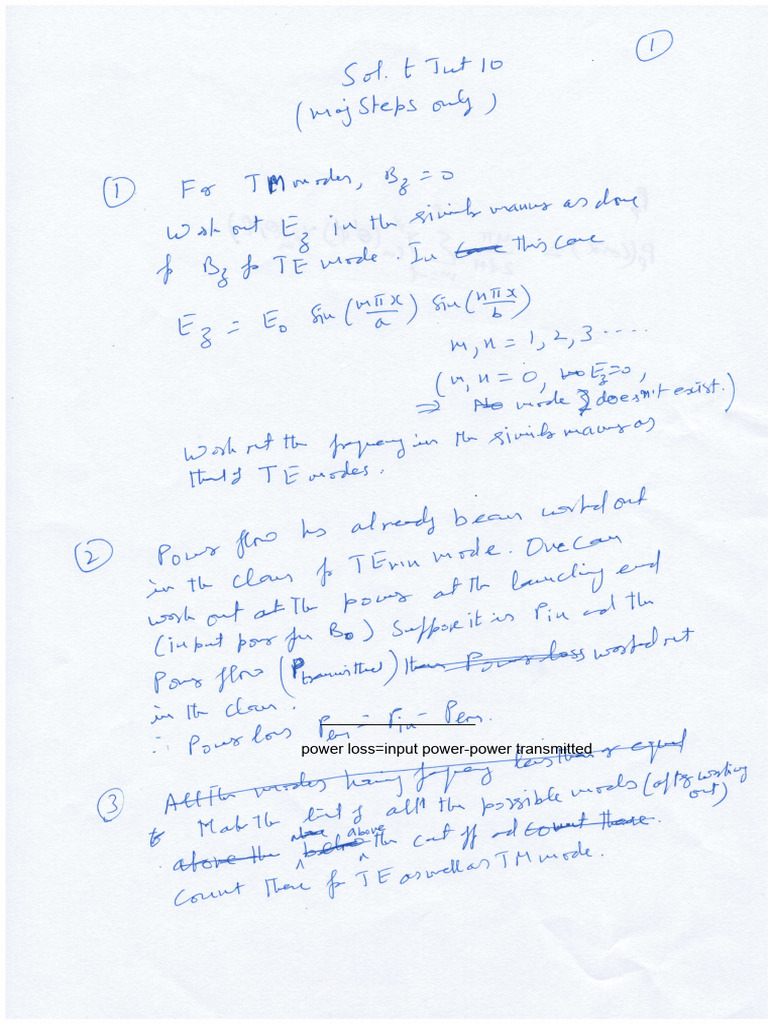 1
Sol. t Tut 10
(maj steps only)
1 For TM modes, B_z = 0
Work out E_z in the similar manner as done
for B_z for TE mode. In this case
E_z = E_0 sin (mπx/a) sin (nπx/b)
m, n = 1, 2, 3 ....
(m, n = 0, E_z = 0,
⇒ No mode doesn't exist.)
Work out the frequency in the similar manner as
that of TE modes.
2 Power flow has already been worked out
in the class for TEmn mode. One can
work out at the power at the launching end
(input power for B_0) Suppose it is Pin and the
Power flow (P transmitted) then Power loss worked out
in the class.
∴ Power loss = Pin -
power loss=input power-power transmitted
3 All the modes having frequency less than or equal
Make the list of all the possible modes (after working
out)
above the below above the cut off and count these.
Count these for TE as well as TM mode.